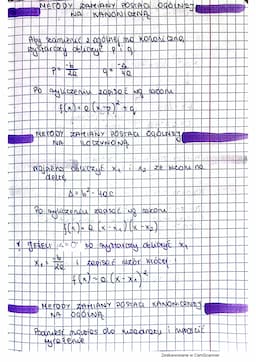 METODY ZAMIANY POSTACI OGÓLNEJ
NA KANONICZNĄ
Aby zamienić z ogólnej na kanoniczną
wystarczy obliczyć p i q
p = -b/2a q = -Δ/4a
Po wyliczeniu zapisać wg wzoru
f(x) = a(x-p)² + q
METODY ZAMIANY POSTACI OGÓLNEJ
NA ILOCZYNOWĄ
obliczyć x₁ i x₂ ze wzoru na
deltę
Δ = b² - 4ac
Po wyliczeniu zapisać wg wzoru
f(x) = a(x-x₁)(x-x₂)
Jeżeli Δ=0 to wystarczy obliczyć x₁
x₁ = -b/2a i zapisać wzór
f(x) = a(x-x₁)²
METODY ZAMIANY POSTACI KANONICZNEJ
NA OGÓLNĄ
Podnieść nawias do kwadratu i uprościć
wyrażenie
Zeskanowane w CamScanner